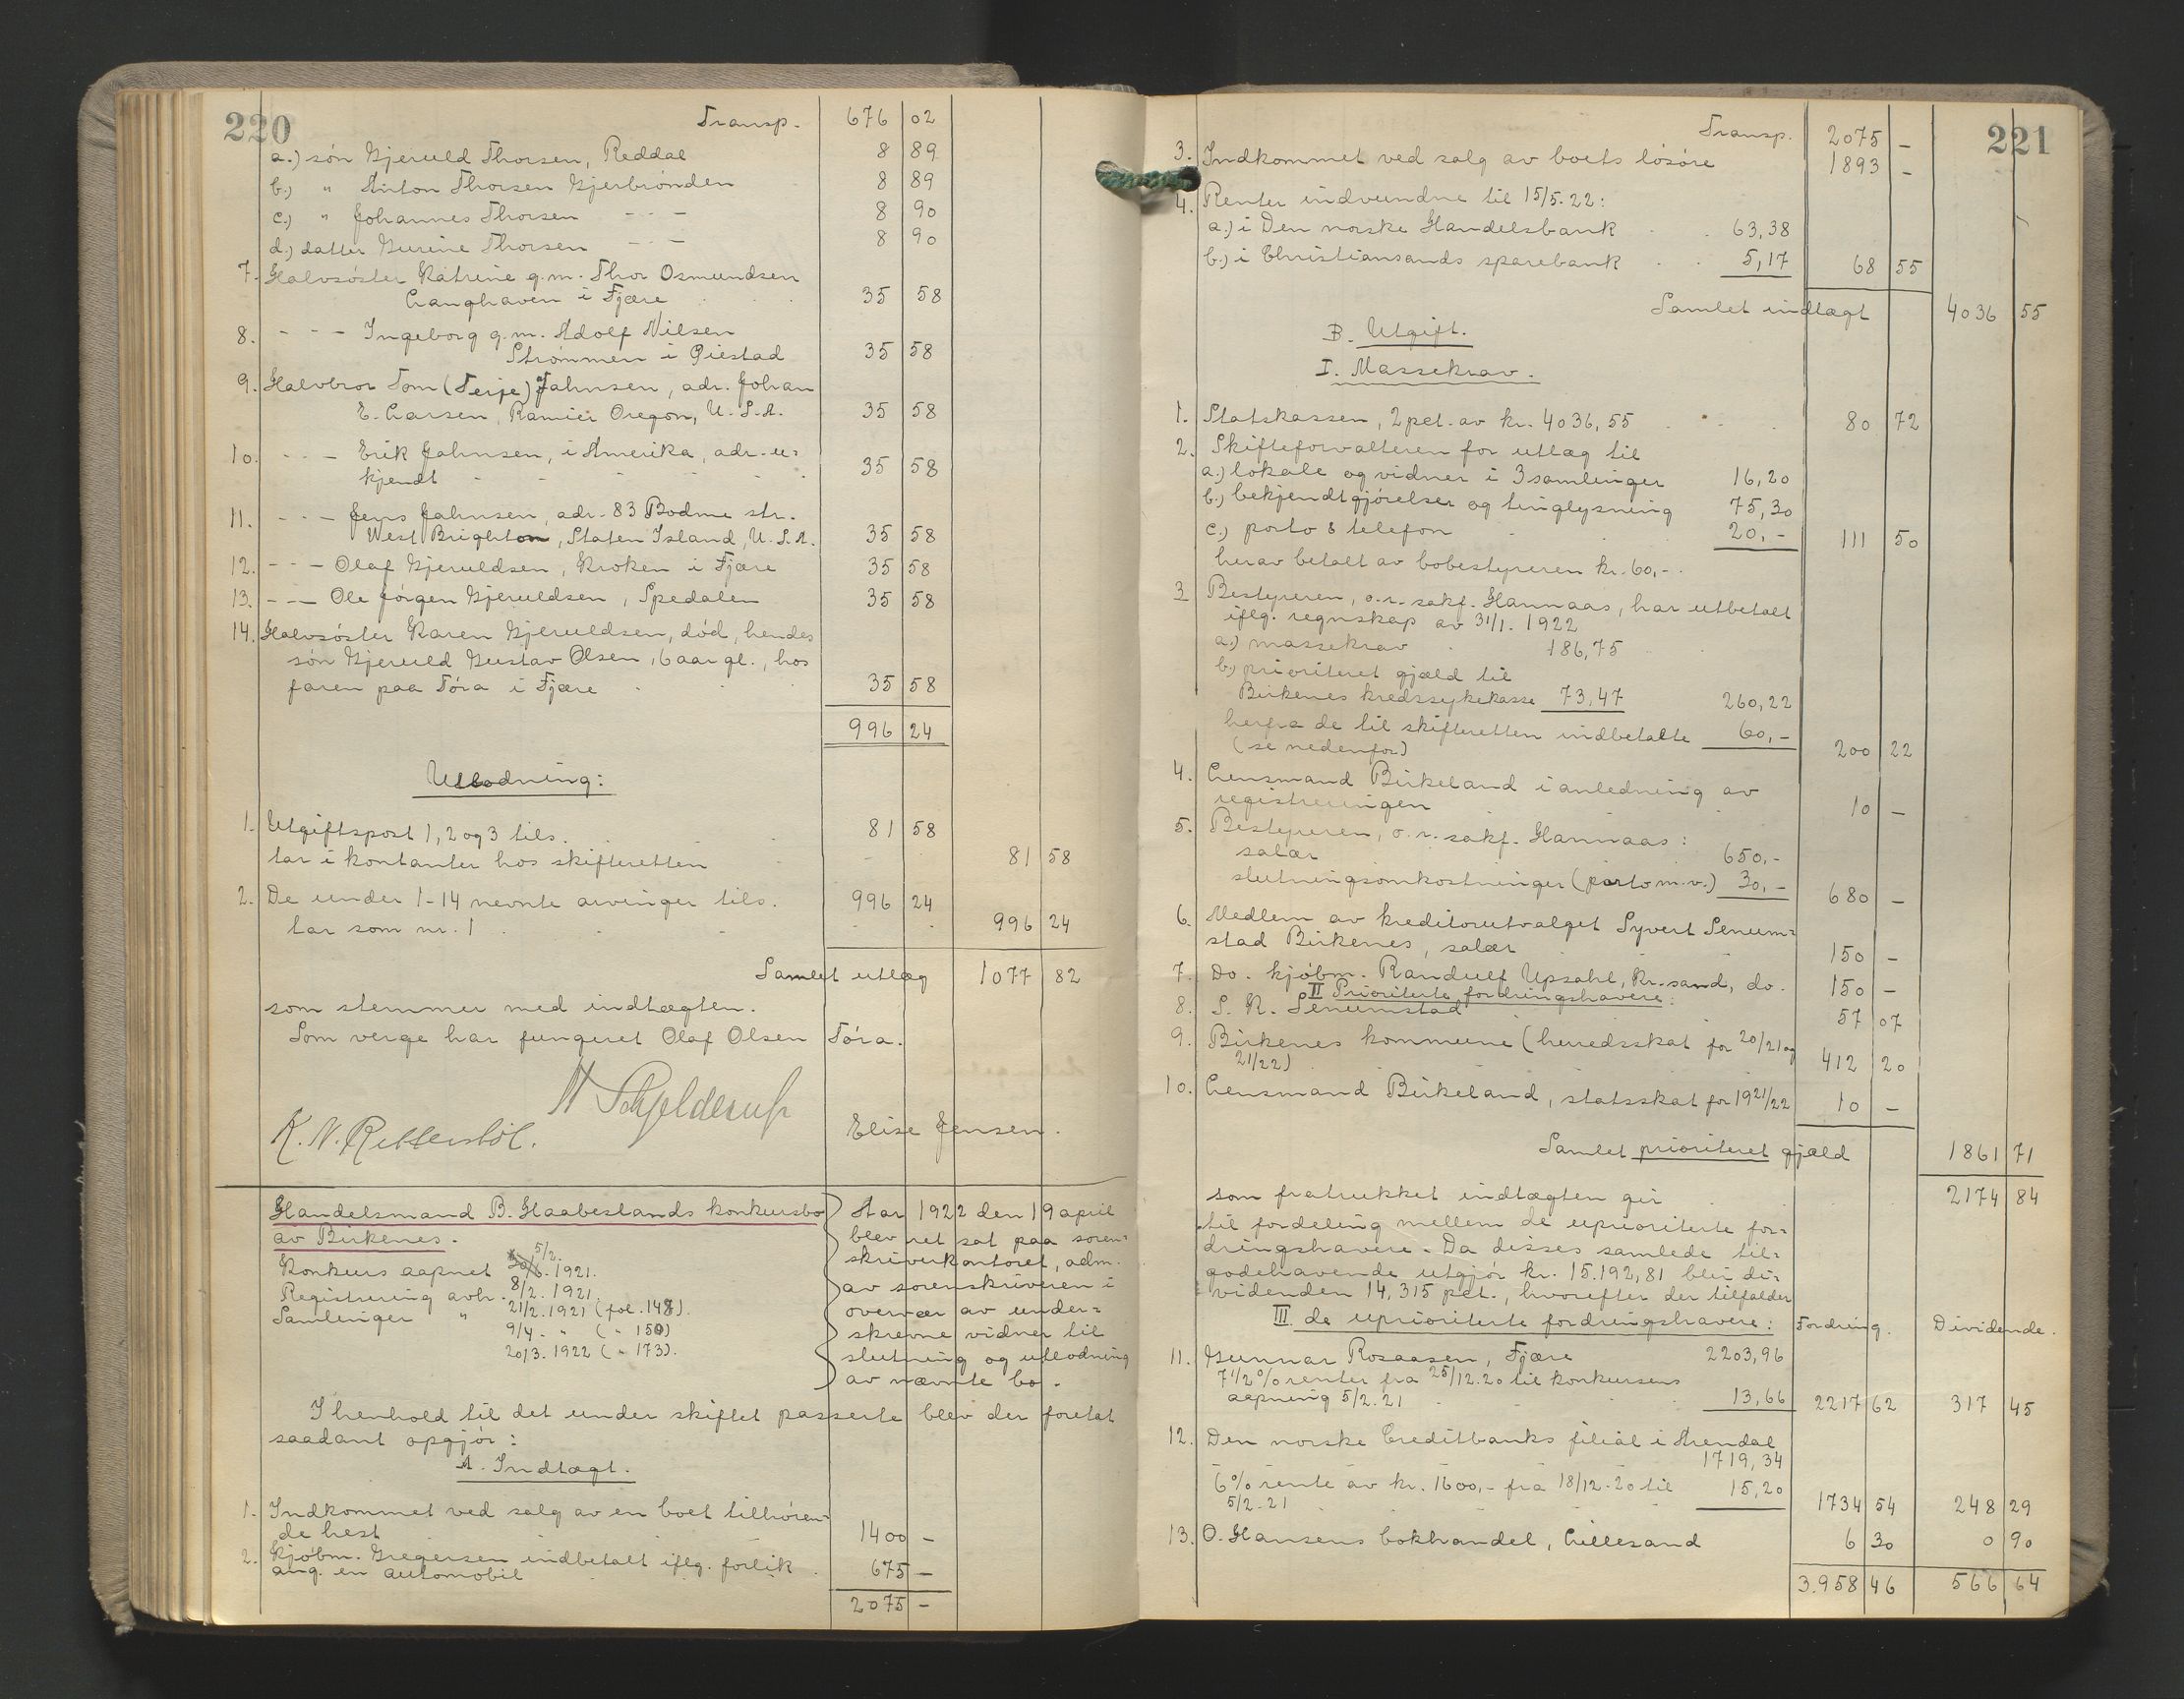 220
Transp. 676 02
a.) søn Gjeruld Thorsen, Reddal 8 89
b.) " Anton Thorsen Gjerbrønden 8 89
c.) " Johannes Thorsen - - - 8 90
d.) datter Gurine Thorsen - - - 8 90
7. Halvsøster Katrine g.m. Thor Osmundsen
Langhaven i Fjære 35 58
8. - - - Ingeborg g.m. Adolf Nilsen
Strømmen i Øiestad 35 58
9. Halvbror Tom (Terje) Jahnsen, adr. Johan
E. Larsen, Ranier Oregon, U.S.A. 35 58
10. - - - Erik Jahnsen, i Amerika, adr. u-
kjendt 35 58
11. - - - Jens Jahnsen, adr. 83 Bodine str.
West Brighton, Staten Island, U.S.A. 35 58
12. - - - Olaf Gjeruldsen, Kroken i Fjære 35 58
13. - - - Ole Jørgen Gjeruldsen, Spedalen 35 58
14. Halvsøster Karen Gjeruldsen, død, hendes
søn Gjeruld Gustav Olsen, 6 aar gl., hos
faren paa Tøra i Fjære 35 58
996 24
Utlodning:
1. Utgiftspost 1, 2 og 3 tils. 81 58
tar i kontanter hos skifteretten 81 58
2. De under 1-14 nevnte arvinger tils. 996 24
tar som nr. 1 996 24
Samlet utlæg 1077 82
som stemmer med indtægten.
Som verge har fungeret Olaf Olsen Tøra.
N Schjelderup
K. N. Rettersbøl. Elise Jensen.
Handelsmand B. Haabestands konkursbo
av Birkenes.
Konkurs aapnet 5/2. 1921.
Registrering avh. 8/2. 1921.
Samlinger " 21/2. 1921 (fol. 148).
9/4. - " (" 150)
20/3. 1922 (" 173).
Aar 1922 den 19 april
blev ret sat paa soren-
skriverkontoret, adm.
av sorenskriveren i
overvær av under-
skrevne vidner til
slutning og utlodning
av nævnte bo.
I henhold til det under skiftet passerte blev der foretat
saadant opgjør:
A. Indtægt.
1. Indkommet ved salg av en boet tilhøren-
de hest 1400 -
2. Kjøbm. Gregersen indbetalt iflg. forlik
ang. en automobil 675 -
2075 -
221
Transp. 2075 -
3. Indkommet ved salg av boets løsøre 1893 -
4. Renter indvundne til 15/5. 22:
a.) i Den norske Handelsbank 63,38
b.) i Christiansands sparebank 5,17 68 55
Samlet indtægt 4036 55
B. Utgift.
I. Massekrav.
1. Statskassen, 2 pct. av kr. 4036,55 80 72
2. Skifteforvalteren for utlæg til
a.) lokale og vidner i 3 samlinger 16,20
b.) bekjendtgjørelser og tinglysning 75,30
c.) porto & telefon 20,- 111 50
herav betalt av bobestyreren kr. 60,-
3 Bestyreren, o.r. sakf. Hannaas, har utbetalt
iflg. regnskap av 31/1. 1922
a.) massekrav 186,75
b.) prioriteret gjæld til
Birkenes kredssykekasse 73,47 260,22
herfra de til skifteretten indbetalte 60,-
(se nedenfor) 200 22
4. Lensmand Birkeland i anledning av
registreringen 10 -
5. Bestyreren, o.r. sakf. Hannaas:
salær 650,-
slutningsomkostninger (porto m.v.) 30,- 680 -
6. Medlem av kreditorutvalget Syvert Senum-
stad Birkenes, salær 150 -
7. Do. kjøbm. Randulf Upsahl, Kr.sand, do. 150 -
II Prioriterte fordringshavere:
8. S. K. Senumstad 57 07
9. Birkenes kommune (herredsskat for 20/21 og
21/22) 412 20
10. Lensmand Birkeland, statsskat for 1921/22 10 -
Samlet prioriteret gjæld 1861 71
som fratrukket indtægten gir 2174 84
til fordeling mellem de uprioriterte for-
dringshavere. Da disses samlede til-
godehavende utgjør kr. 15.192,81 blir di-
videnden 14,315 pct., hvorefter der tilfalder
III. de uprioriterte fordringshavere: Fordring. Dividende.
11. Gunnar Rosaasen, Fjære 2203,96
7 1/2 % renter fra 25/12. 20 til konkursens
aapning 5/2. 21 13,66 2217 62 317 45
12. Den norske Creditbanks filial i Arendal
1719,34
6% rente av kr. 1600,- fra 18/12. 20 til 15,20
5/2. 21 1734 54 248 29
13. O. Hansens bokhandel, Lillesand 6 30 0 90
3.958 46 566 64